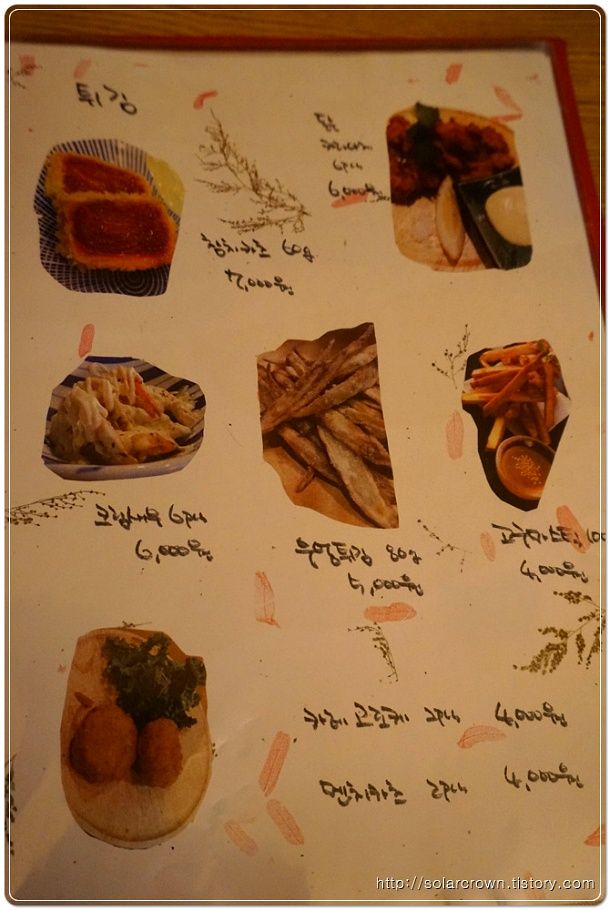 튀김
닭
5개
6,000원
참치카츠
7,000원
크림새우 6개
6,000원
우엉튀김 80g
5,000원
고구마스틱
4,000원
카레 고로케 2개 4,000원
멘치카츠 2개 4,000원
http://solarcrown.tistory.com